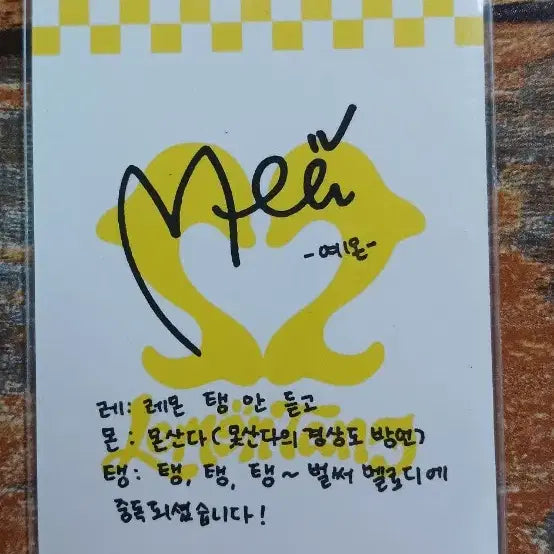 -예온-
레: 레몬 탱 안 듣고
몬: 몬산다(못산다의 경상도 방언)
탱: 탱, 탱, 탱~ 벌써 멜로디에
중독되셨습니다!